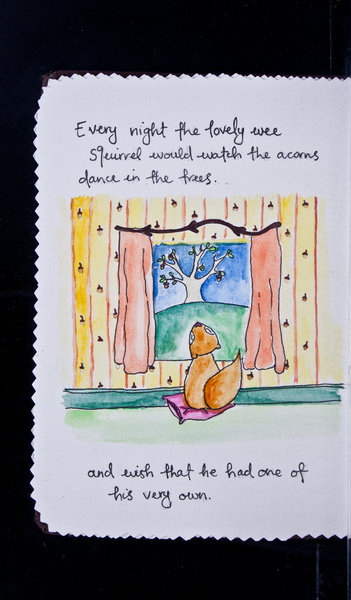 Every night the lovely wee
squirrel would watch the acorns
dance in the trees.
and wish that he had one of
his very own.